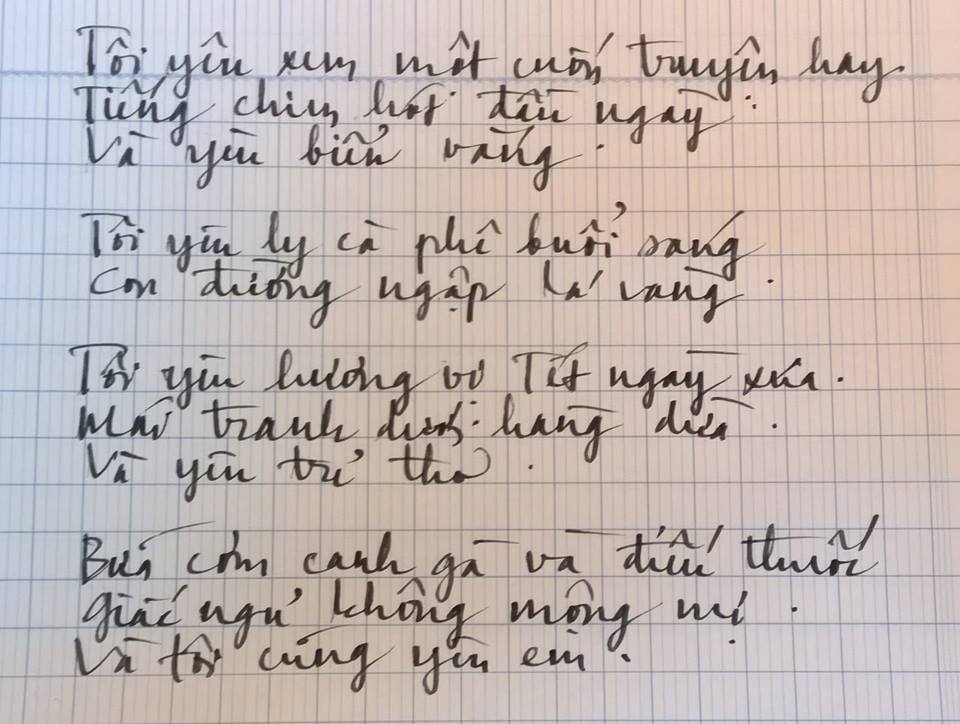 Tôi yêu xem một cuốn truyện hay.
Tiếng chim hót đầu ngày.
Và yêu biển vắng.
Tôi yêu ly cà phê buổi sáng
Con đường ngập lá vàng.
Tôi yêu hương vị Tết ngày xưa.
Mái tranh dưới hàng dừa.
Và yêu trẻ thơ.
Bữa cơm canh cà và điếu thuốc
Giấc ngủ không mộng mị.
Và tôi cũng yêu em.